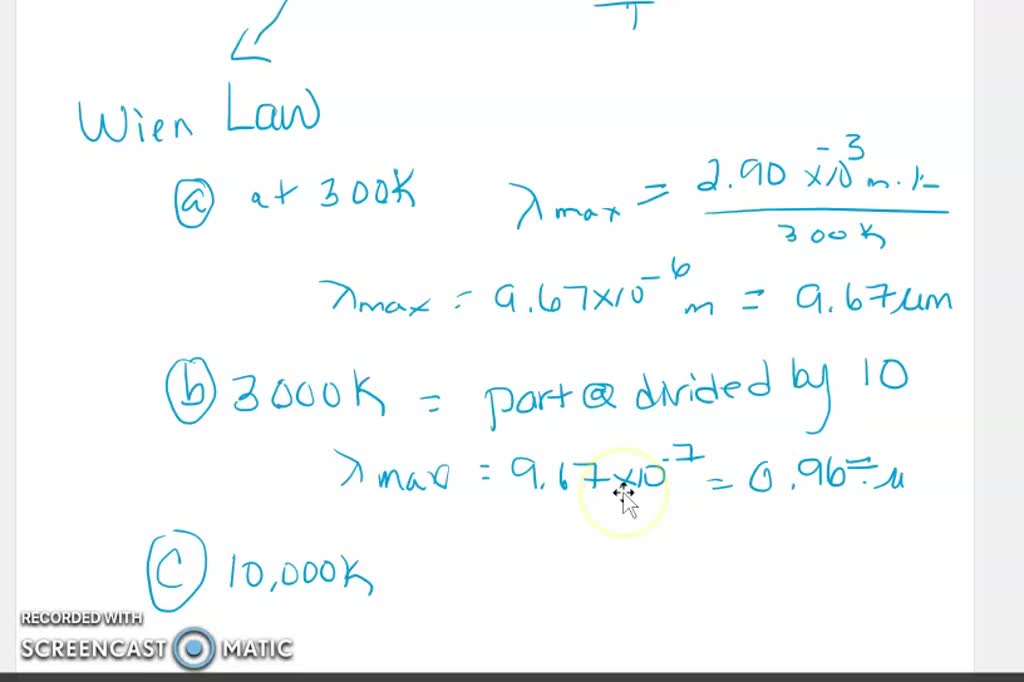 T
Wien Law
(a) at 300K λmax = 2.90 x10⁻³ m.k
300K
λmax = 9.67x10⁻⁶ m = 9.67μm
(b) 3000K = part @ divided by 10
λmax = 9.67x10⁻⁷ = 0.967μ
(C) 10,000K
RECORDED WITH
SCREENCAST MATIC